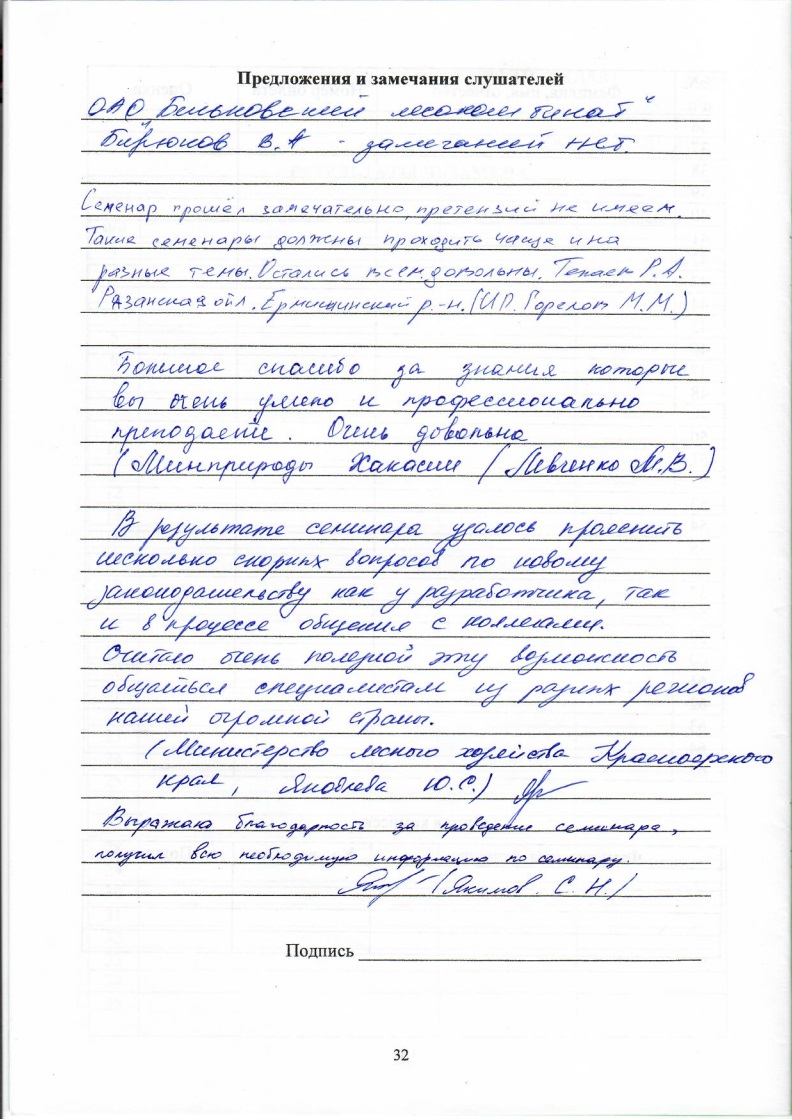 Предложения и замечания слушателей
ОАО „Бельковский лесокомбинат"
Бирюков В.А - замечаний нет
Семенар прошёл замечательно, претензий не имеем.
Такие семенары должны проходить чаще и на
разные темы. Остались всем довольны. Р.А.
Рязанская обл. Ермишинский р.-н. (ИП. Горелов М.М.)
Большое спасибо за знания которые
вы очень умело и профессионально
преподаете. Очень довольна
(Минприроды Хакасии (Левченко М.В.)
В результате семинара удалось прояснить
несколько спорных вопросов по новому
законодательству как у разработчика, так
и в процессе общения с коллегами.
Считаю очень полезной эту возможность
общаться специалистам из разных регионов
нашей огромной страны.
(Министерство лесного хозяйства Красноярского
края, Яковлева Ю.С.)
Выражаю благодарность за проведение семинара,
получил всю необходимую информацию по семинару.
(Якимов С.Н.)
Подпись
32